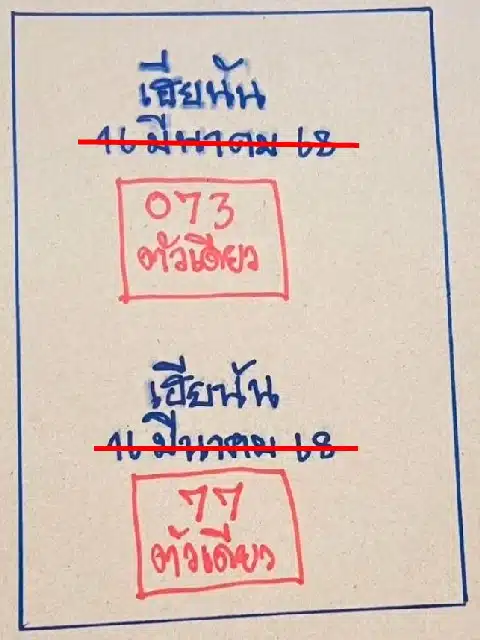 เฮียนัน
16 มีนาคม 68
073
ตัวเดียว
เฮียนัน
16 มีนาคม 68
77
ตัวเดียว